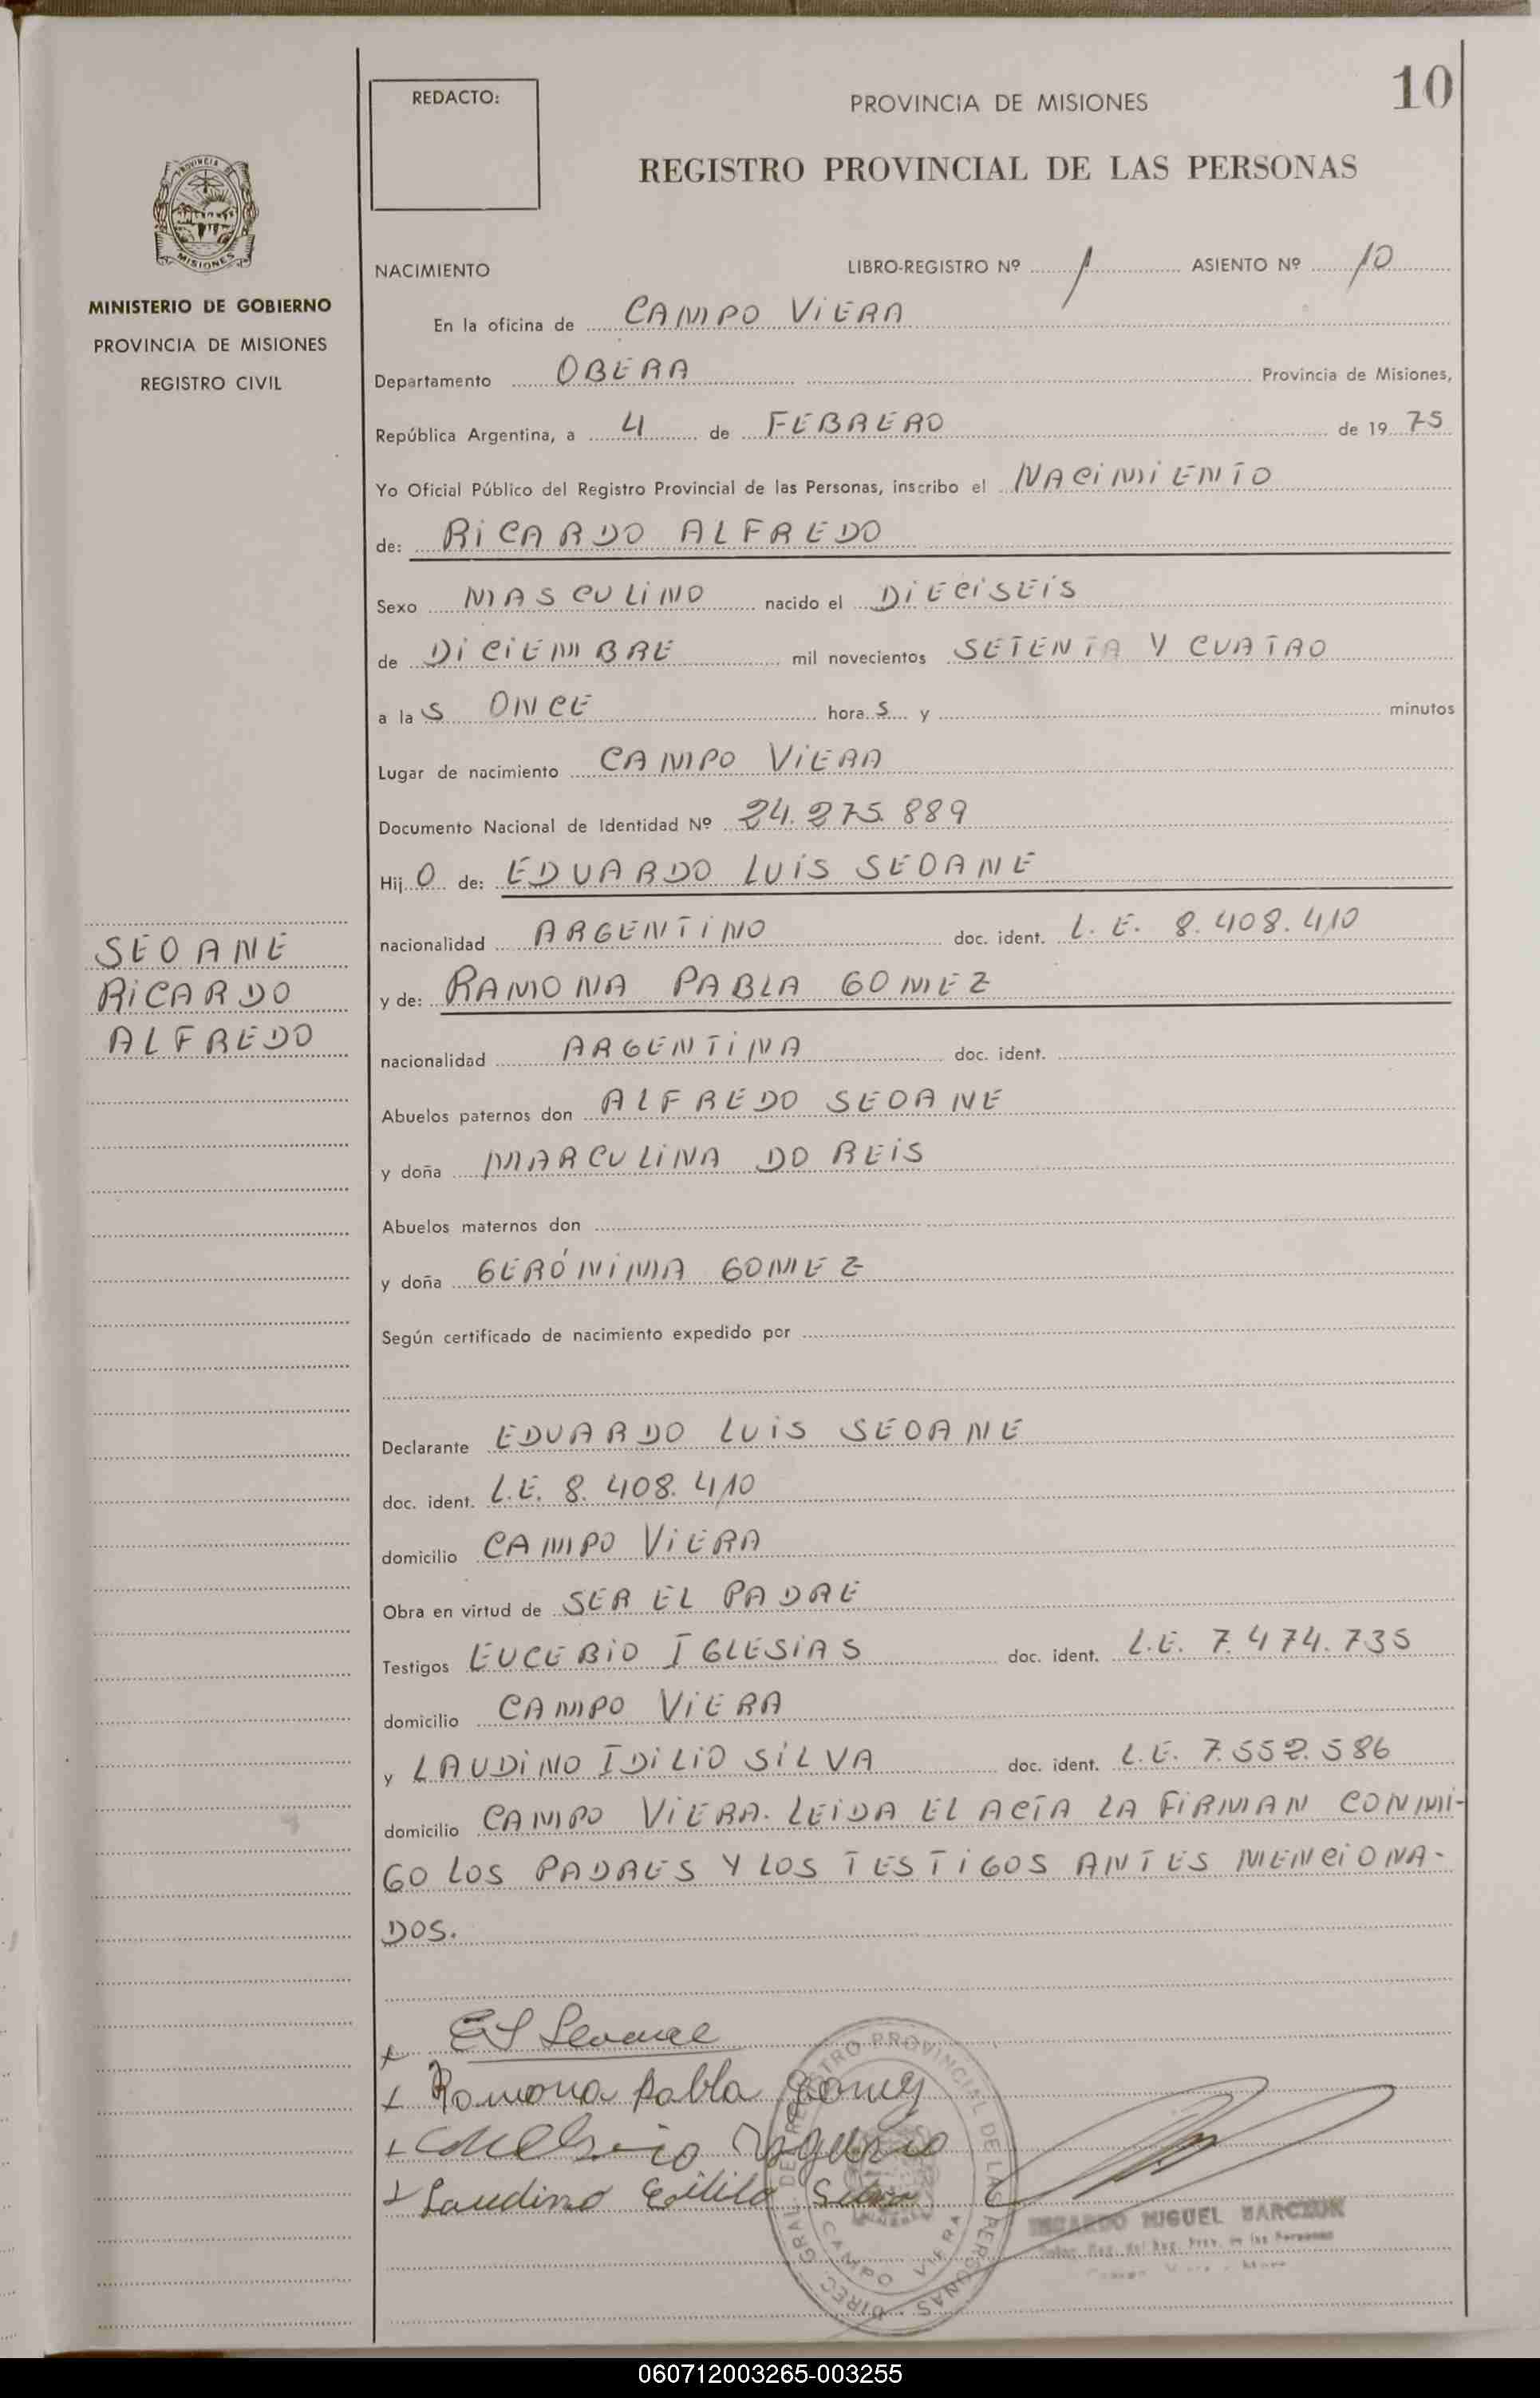 10
REDACTO:
PROVINCIA DE MISIONES
REGISTRO PROVINCIAL DE LAS PERSONAS
PROVINCIA
MISIONES
MINISTERIO DE GOBIERNO
PROVINCIA DE MISIONES
REGISTRO CIVIL
NACIMIENTO LIBRO-REGISTRO Nº 1 ASIENTO Nº 10
En la oficina de CAMPO VIERA
Departamento OBERA Provincia de Misiones,
República Argentina, a 4 de FEBRERO de 19 75
Yo Oficial Público del Registro Provincial de las Personas, inscribo el NACIMIENTO
de: RICARDO ALFREDO
Sexo MASCULINO nacido el DIECISEIS
de DICIEMBRE mil novecientos SETENTA Y CUATRO
a la S ONCE hora S y minutos
Lugar de nacimiento CAMPO VIERA
Documento Nacional de Identidad Nº 24.275.889
Hij O de: EDUARDO LUIS SEOANE
nacionalidad ARGENTINO doc. ident. L.E. 8.408.410
SEOANE
RICARDO
ALFREDO
y de: RAMONA PABLA GOMEZ
nacionalidad ARGENTINA doc. ident.
Abuelos paternos don ALFREDO SEOANE
y doña MARCULINA DO REIS
Abuelos maternos don
y doña GERÓNIMA GOMEZ
Según certificado de nacimiento expedido por
Declarante EDUARDO LUIS SEOANE
doc. ident. L.E. 8.408.410
domicilio CAMPO VIERA
Obra en virtud de SER EL PADRE
Testigos EUCEBIO IGLESIAS doc. ident. L.E. 7.474.735
domicilio CAMPO VIERA
y LAUDINO IDILIO SILVA doc. ident. L.E. 7.552.586
domicilio CAMPO VIERA. LEIDA EL ACTA LA FIRMAN CONMI-
GO LOS PADRES Y LOS TESTIGOS ANTES MENCIONA-
DOS.
Seoane
Ramona Pabla Gomez
Laudino Silva
DIREC. GRAL. DEL REGISTRO PROVINCIAL DE LAS PERSONAS
CAMPO VIERA
MIGUEL
060712003265-003255